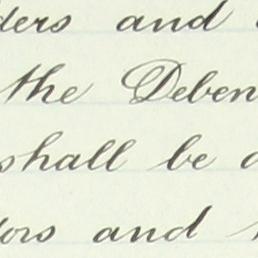 ders and
the Deben
shall be
ors and